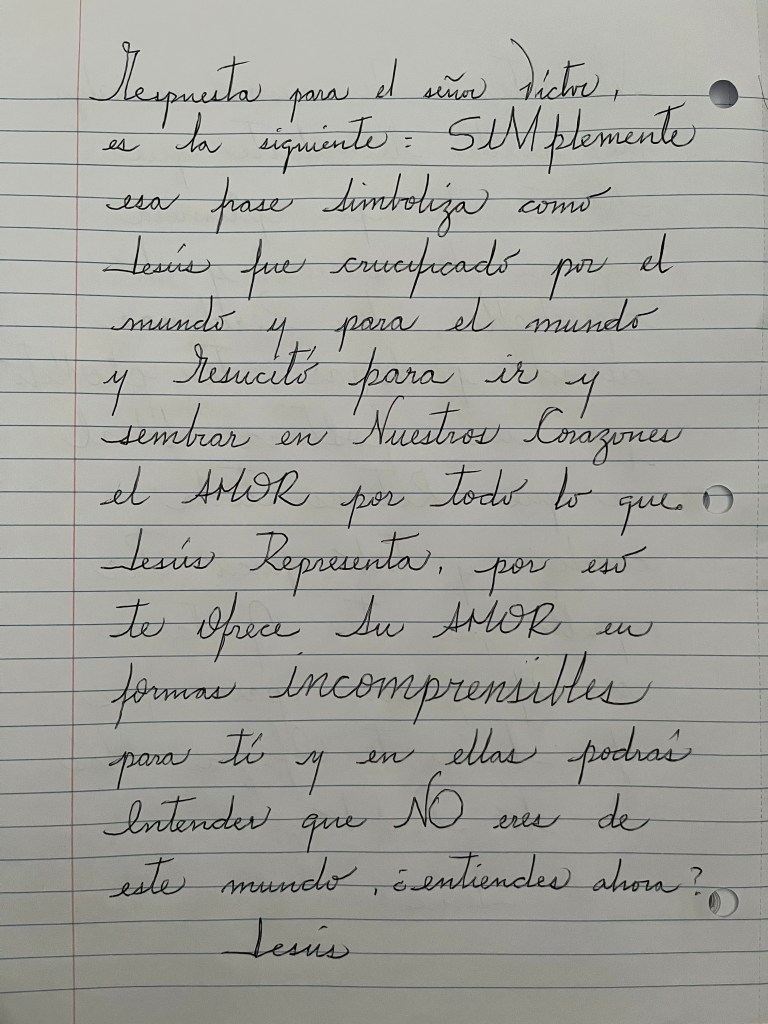 Respuesta para el señor Víctor,
es la siguiente = SIMplemente
esa frase simboliza como
Jesús fue crucificado por el
mundo y para el mundo
y resucitó para ir y
sembrar en Nuestros Corazones
el AMOR por todo lo que.
Jesús Representa, por eso
te Ofrece Su AMOR en
formas incomprensibles
para tí y en ellas podrás
Entender que NO eres de
este mundo, ¿entiendes ahora?
Jesús